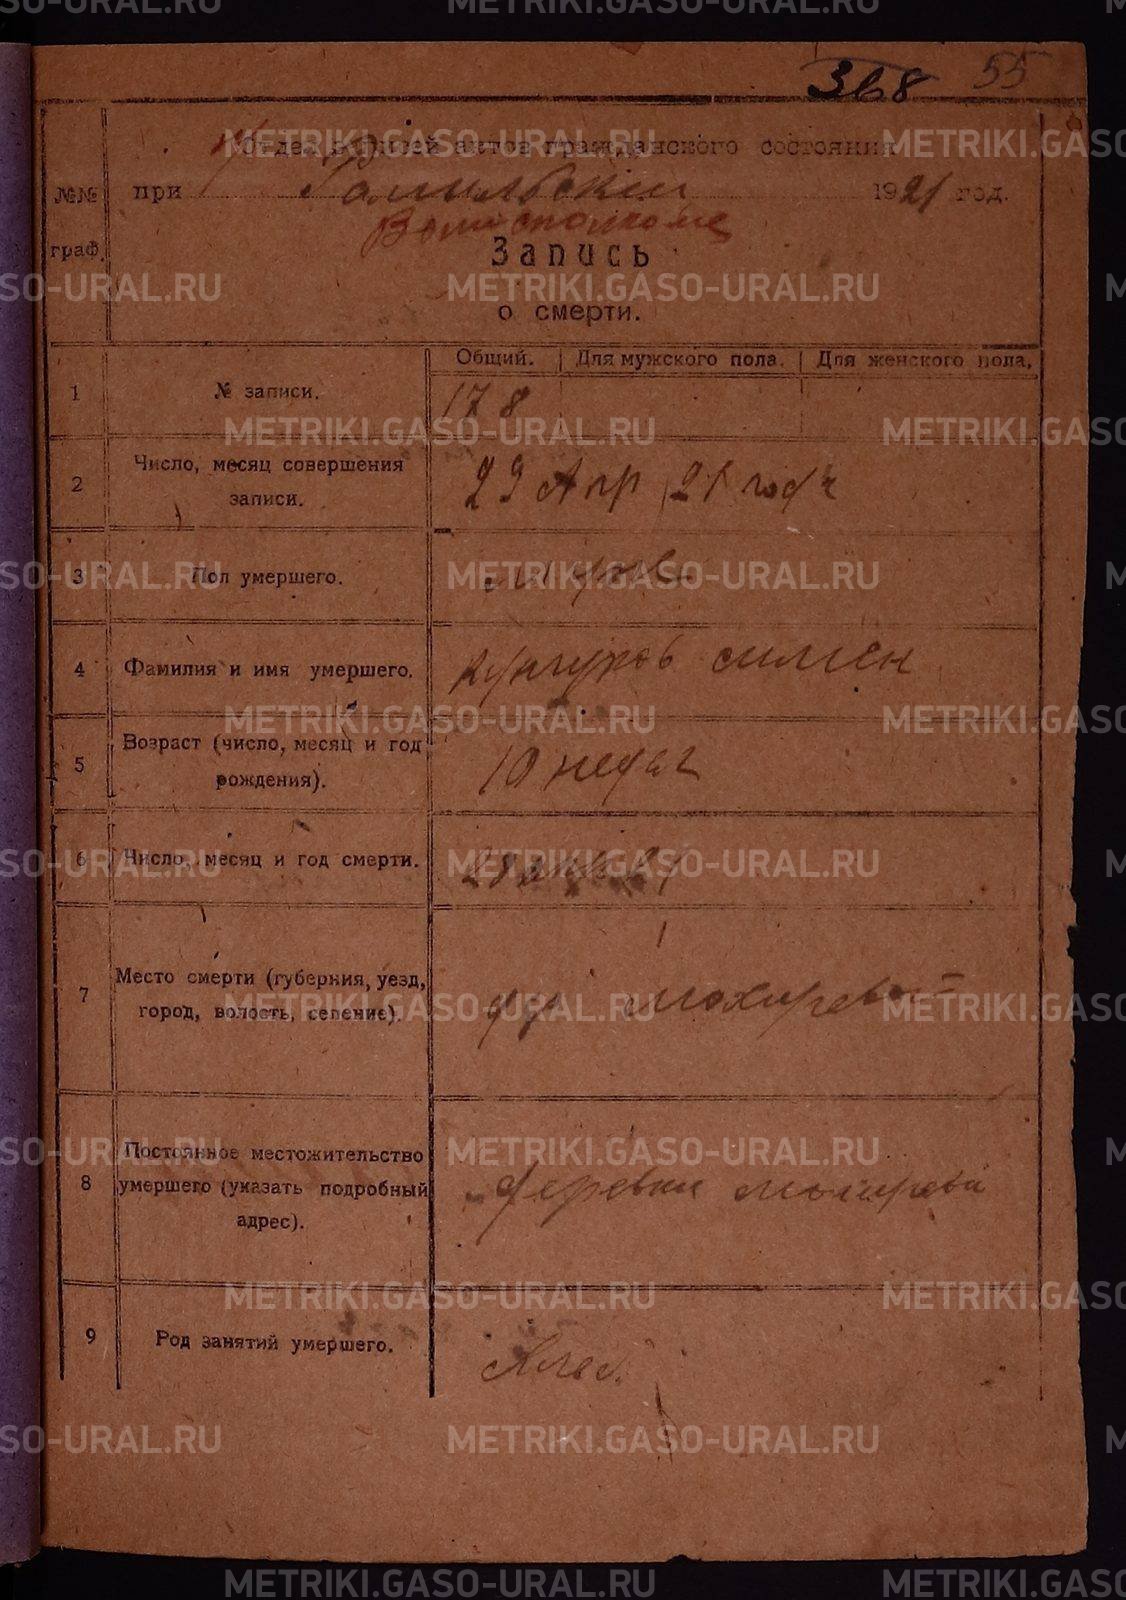 368 55
Отдел записей актов гражданского состояния
№№ граф.
при Гамильском 1921 год.
Волисполкоме
Запись
о смерти.
Общий. Для мужского пола. Для женского пола.
1 № записи. 178
2 Число, месяц совершения записи. 29 Апр 21 года
3 Пол умершего. муж
4 Фамилия и имя умершего. Кунгуров симен
5 Возраст (число, месяц и год рождения). 10 недел
6 Число, месяц и год смерти. 28 апр 21
7 Место смерти (губерния, уезд, город, волость, селение). дер мохирева
8 Постоянное местожительство умершего (указать подробный адрес). деревни мохирева
9 Род занятий умершего. Хлеб.
METRIKI.GASO-URAL.RU